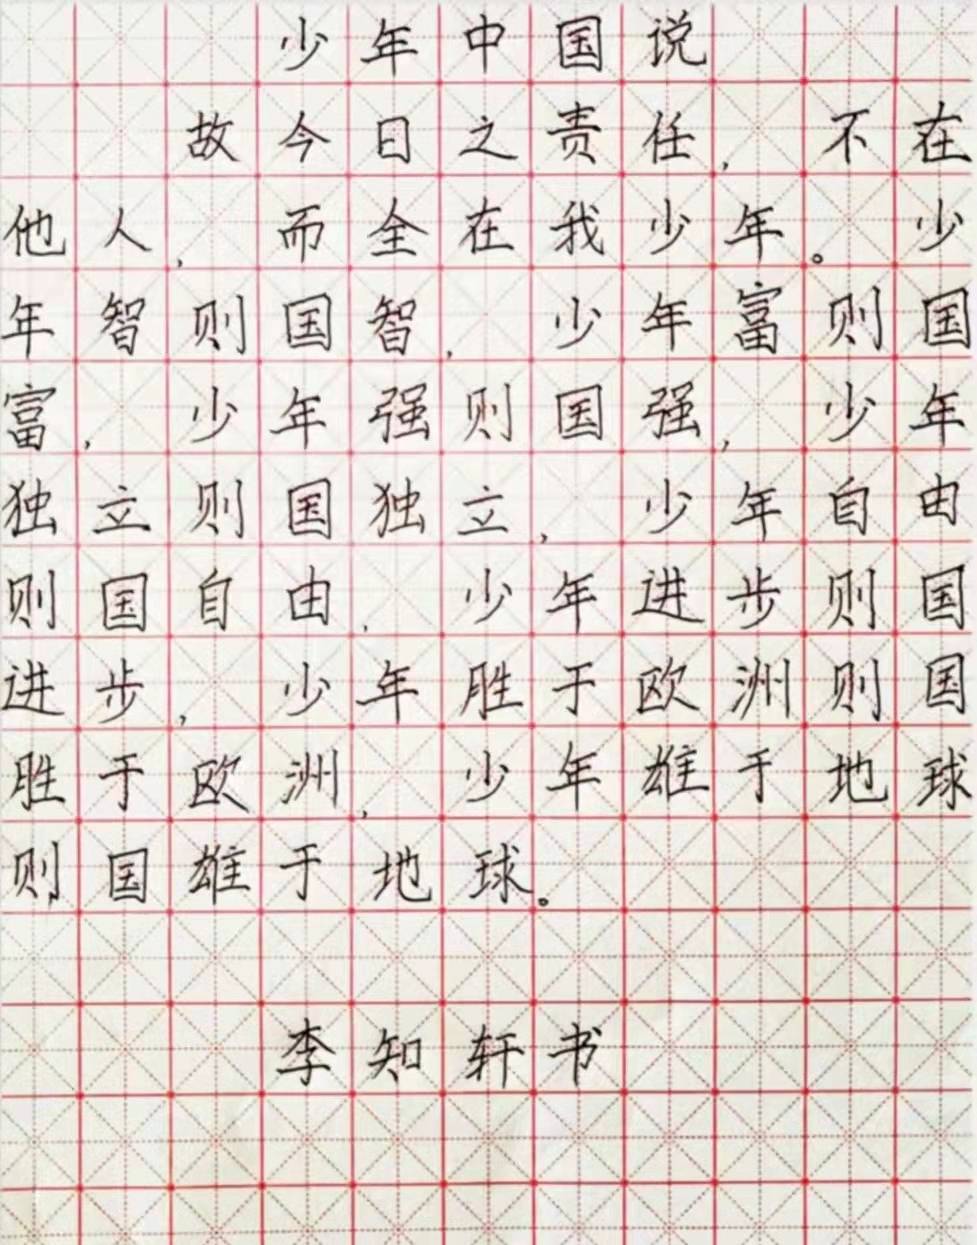 少年中国说
故今日之责任，不在
他人，而全在我少年。少
年智则国智，少年富则国
富，少年强则国强，少年
独立则国独立，少年自由
则国自由，少年进步则国
进步，少年胜于欧洲则国
胜于欧洲，少年雄于地球
则国雄于地球。
李知轩书